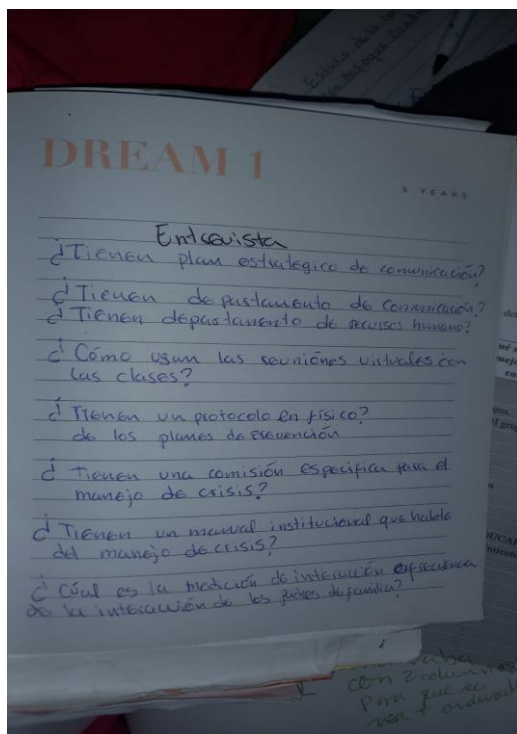 Estilo de la
enfoque
DREAM 1
5 YEARS
Entrevista
¿Tienen plan estrategico de comunicación?
¿Tienen departamento de Comunicación?
¿Tienen departamento de recursos humano?
¿Cómo usan las reuniónes virtuales con
las clases?
¿Tienen un protocolo en físico?
de los planes de prevención
¿Tienen una comisión específica para el
manejo de crisis?
¿Tienen un manual institucional que hable
del manejo de crisis?
¿Cúal es la medición de interacción
de la interacción de los padres de familia?
con 2 columnas
Para que se
vea + ordenado